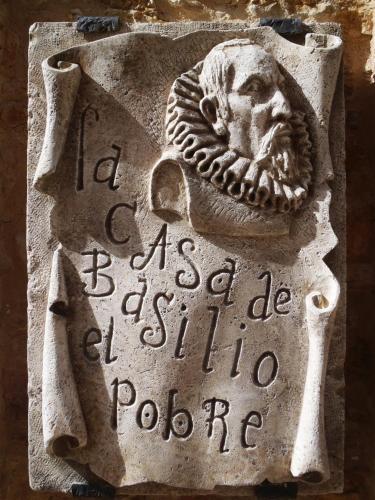 la
CASa de
Basilio
el
pobRe